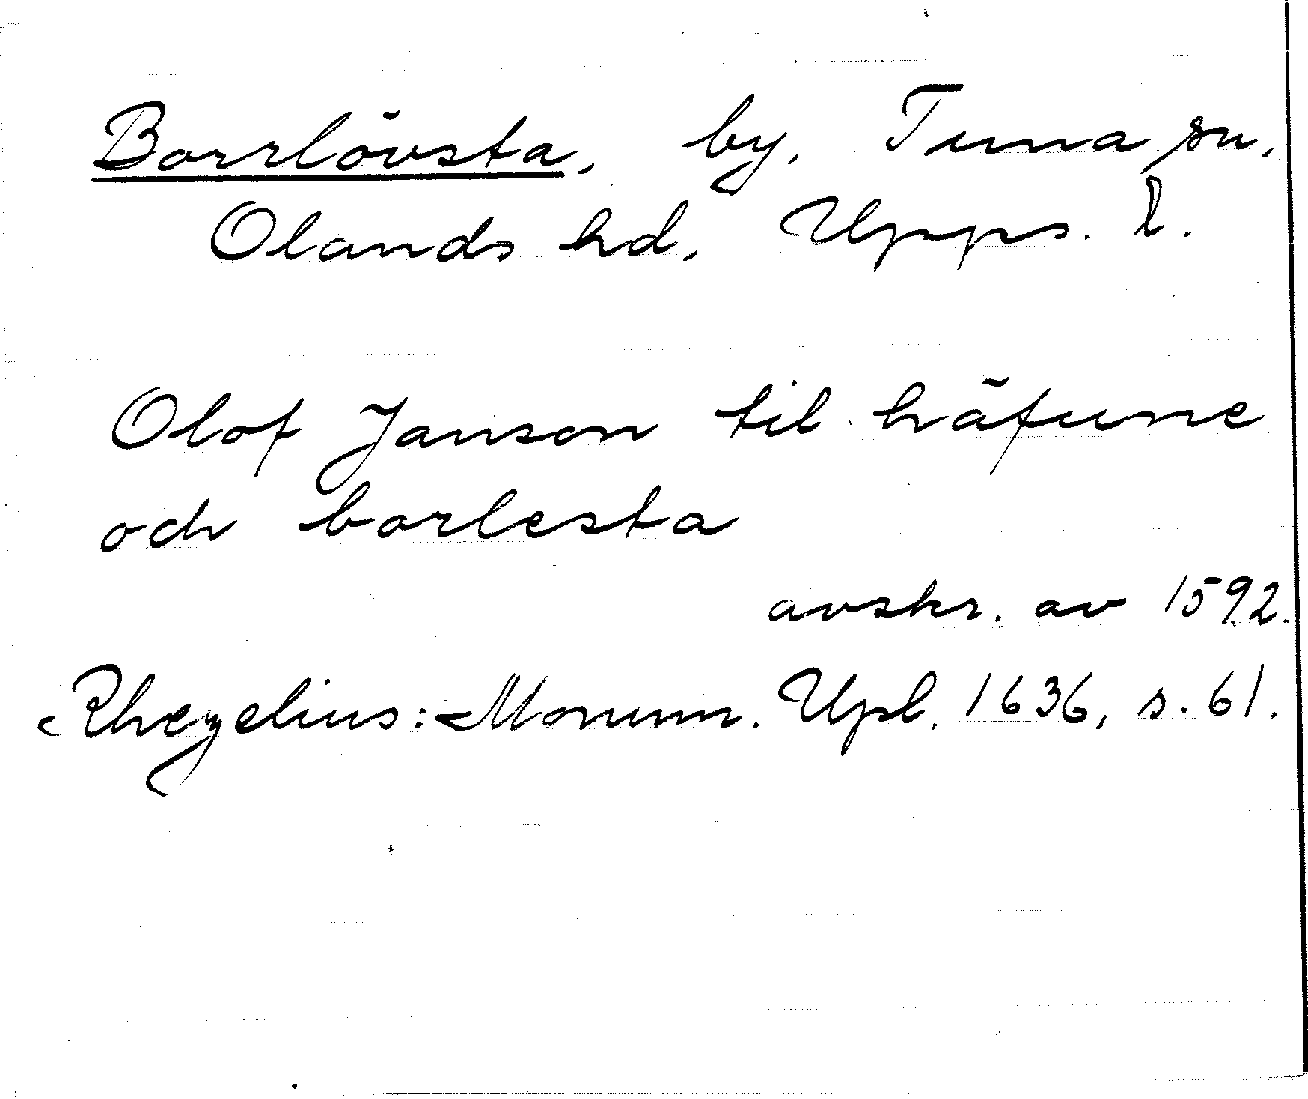 Borrlövsta, by, Tuna sn,
Olands hd, Upps. l.
Olof Janson til häfune
och borlesta
avskr. av 1592.
Rhezelius: Monum. Upl. 1636, s. 61.